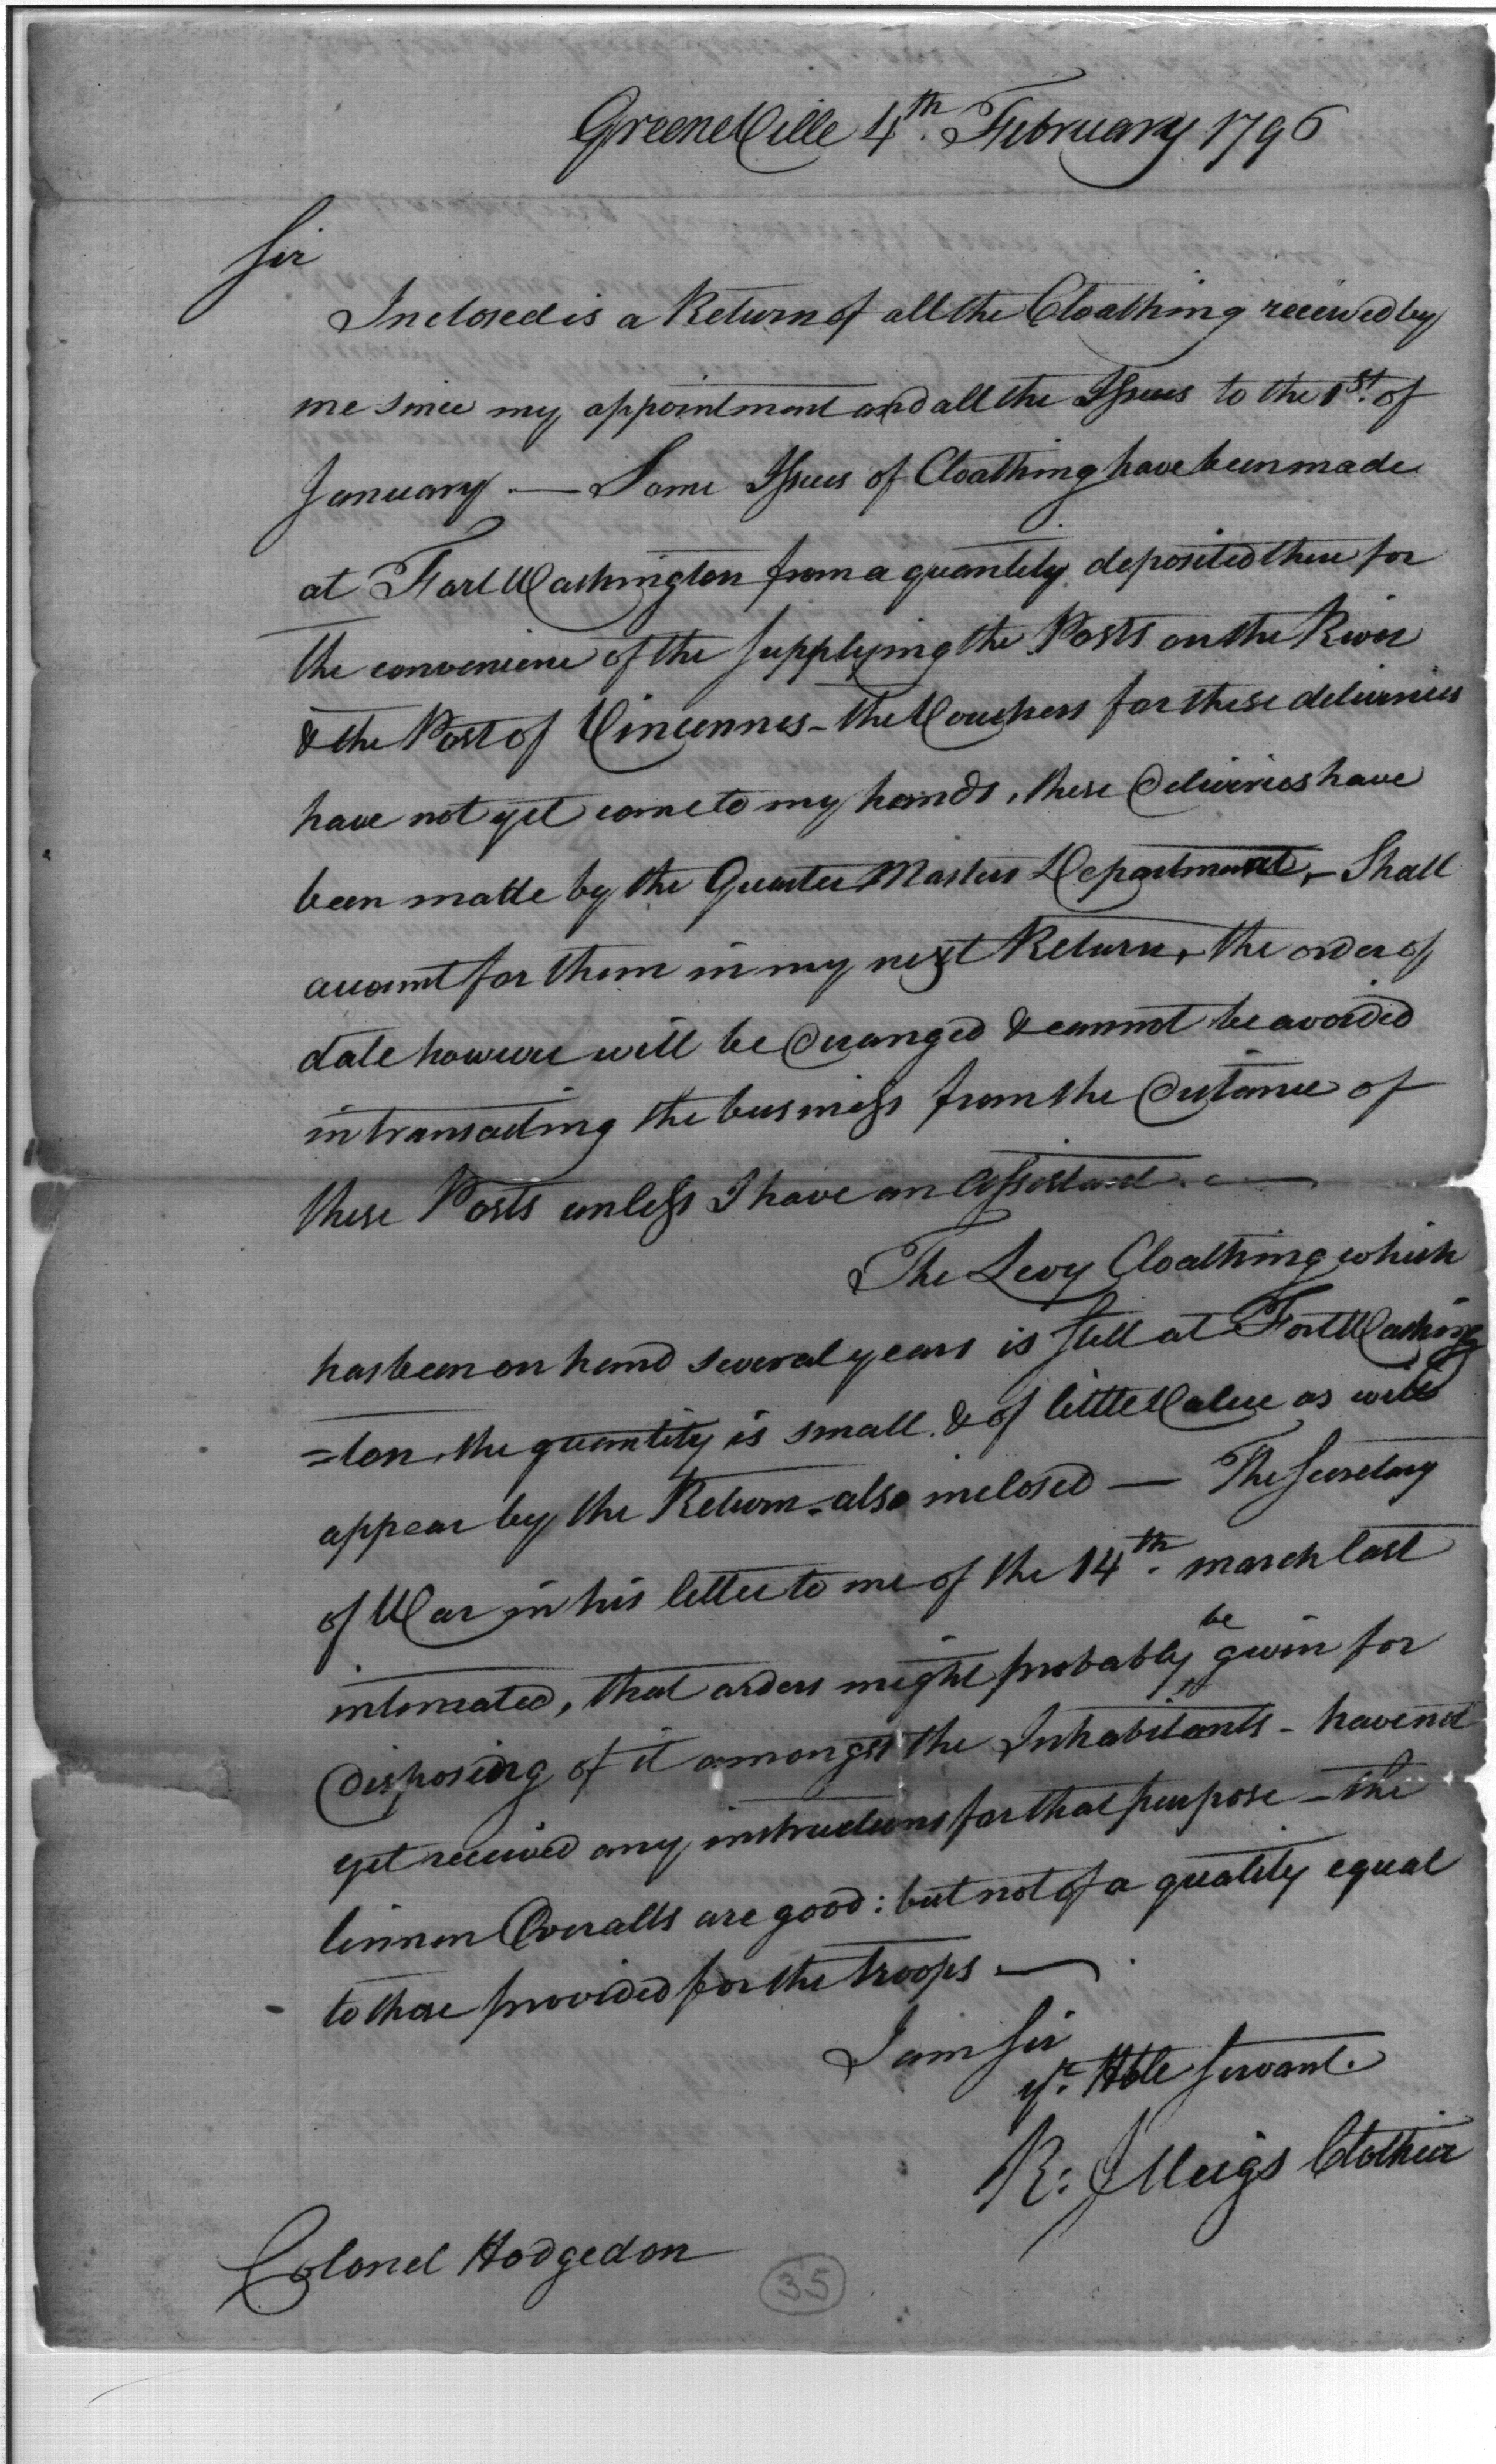 GreeneVille 4th. February 1796
Sir
Inclosed is a Return of all the Cloathing received by
me since my appointment and all the Issues to the 1st. of
January. — Some Issues of Cloathing have been made
at Fort Washington from a quantity deposited there for
the convenience of the supplying the Posts on the River
& the Post of Vincennes - the Vouchers for these deliveries
have not yet come to my hands, these Deliveries have
been made by the Quarter Masters Department, - Shall
account for them in my next Return, the order of
date however will be Deranged & cannot be avoided
in transacting the business from the Distance of
these Posts unless I have an Assistant. —
The Levy Cloathing which
has been on hand several years is still at Fort Washing
=ton, the quantity is small. & of little Value as will
appear by the Return - also inclosed — The Secretary
of War in his letter to me of the 14th. march last
intimated, that orders might probably be given for
Disposing of it amongst the Inhabitants - have not
yet received any instructions for that purpose - the
linnen Overalls are good: but not of a quality equal
to those provided for the troops —.
I am Sir
yr. Hble Servant.
R: J Meigs Clothier
Colonel Hodgedon
35